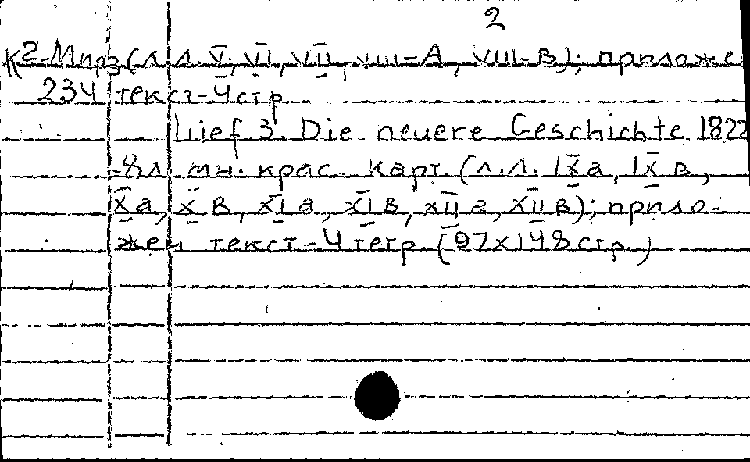 2
К2-Мирз(л.л. V, VI, VII, VIII-А, VIII-В); приложе
234 текст-4стр
Lief 3. Die neuere Geschichte 1822
-8л. мн. крас. карт. (л.л. IXа, IXв,
Xа, Xв, XIа, XIв, XIIа, XIIв); прило-
жен текст-4тетр. (97х148стр.)